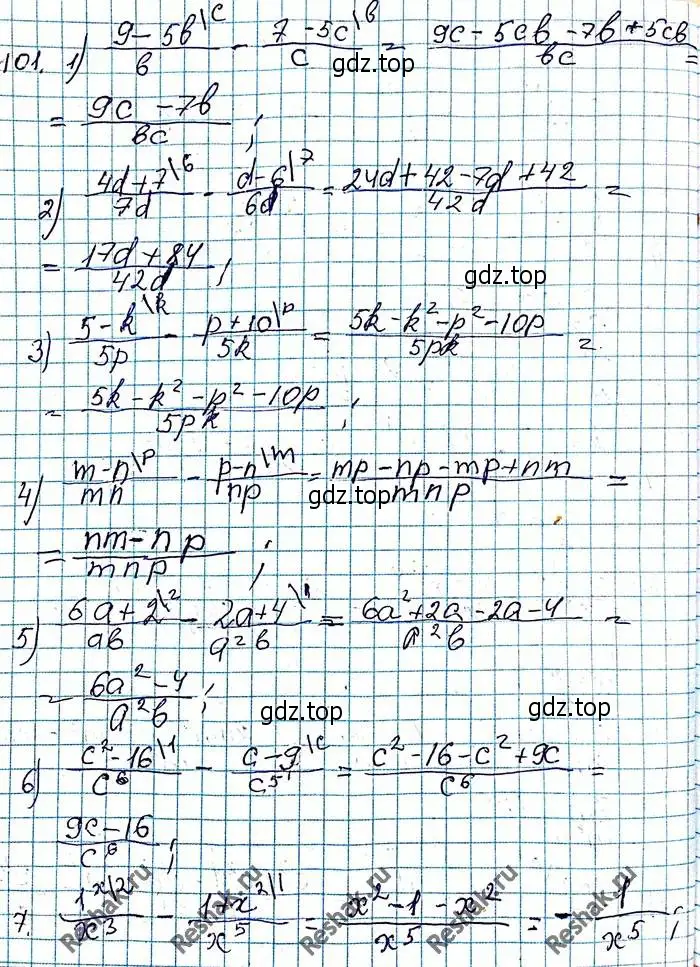 101. 1) (9-5в\c)/в - (7-5c\в)/c = (9c-5cв-7в+5cв)/вc =
gdz.top
= (9c-7в)/вc ;
2) (4d+7\6)/7d - (d-6\7)/6d = (24d+42-7d+42)/42d =
= (17d+84)/42d ;
gdz.top
3) (5-k\k)/5p - (p+10\p)/5k = (5k-k²-p²-10p)/5pk =
= (5k-k²-p²-10p)/5pk ;
4) (m-n\p)/mn - (p-n\m)/np = (mp-np-mp+nm)/mnp =
gdz.top
= (nm-np)/mnp ;
5) (6a+2\²)/aв - (2a+4\1)/a²в = (6a²+2a-2a-4)/a²в =
= (6a²-4)/a²в ;
gdz.top
gdz.top
6) (c²-16\1)/c⁶ - (c-9\c)/c⁵ = (c²-16-c²+9c)/c⁶ =
(9c-16)/c⁶ ;
7. (1\x²)/x³ - (1+x²\1)/x⁵ = (x²-1-x²)/x⁵ = -1/x⁵ ;
Reshak.ru
Reshak.ru
Reshak.ru
Reshak.ru